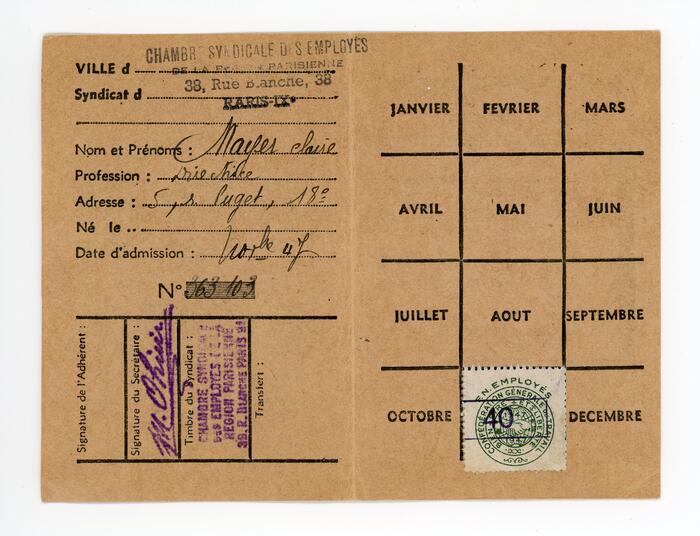 CHAMBRE SYNDICALE DES EMPLOYÉS
DE LA RÉGION PARISIENNE
38, Rue Blanche, 38
PARIS-IXe
VILLE d
Syndicat d
Nom et Prénoms : Mayer Claire
Profession : directrice
Adresse : 5, r Puget, 18e
Né le ..
Date d'admission : Novbe 47
N° 363 103
Signature de l'Adhérent :
Signature du Secrétaire :
Timbre du Syndicat :
CHAMBRE SYNDICALE
DES EMPLOYÉS DE LA
RÉGION PARISIENNE
38, R. BLANCHE PARIS 9e
Transfert :
JANVIER FEVRIER MARS
AVRIL MAI JUIN
JUILLET AOUT SEPTEMBRE
OCTOBRE DECEMBRE
EN. EMPLOYÉS
CONFÉDÉRATION GÉNÉRALE DU TRAVAIL
BIEN-ÊTRE ET LIBERTÉ
40